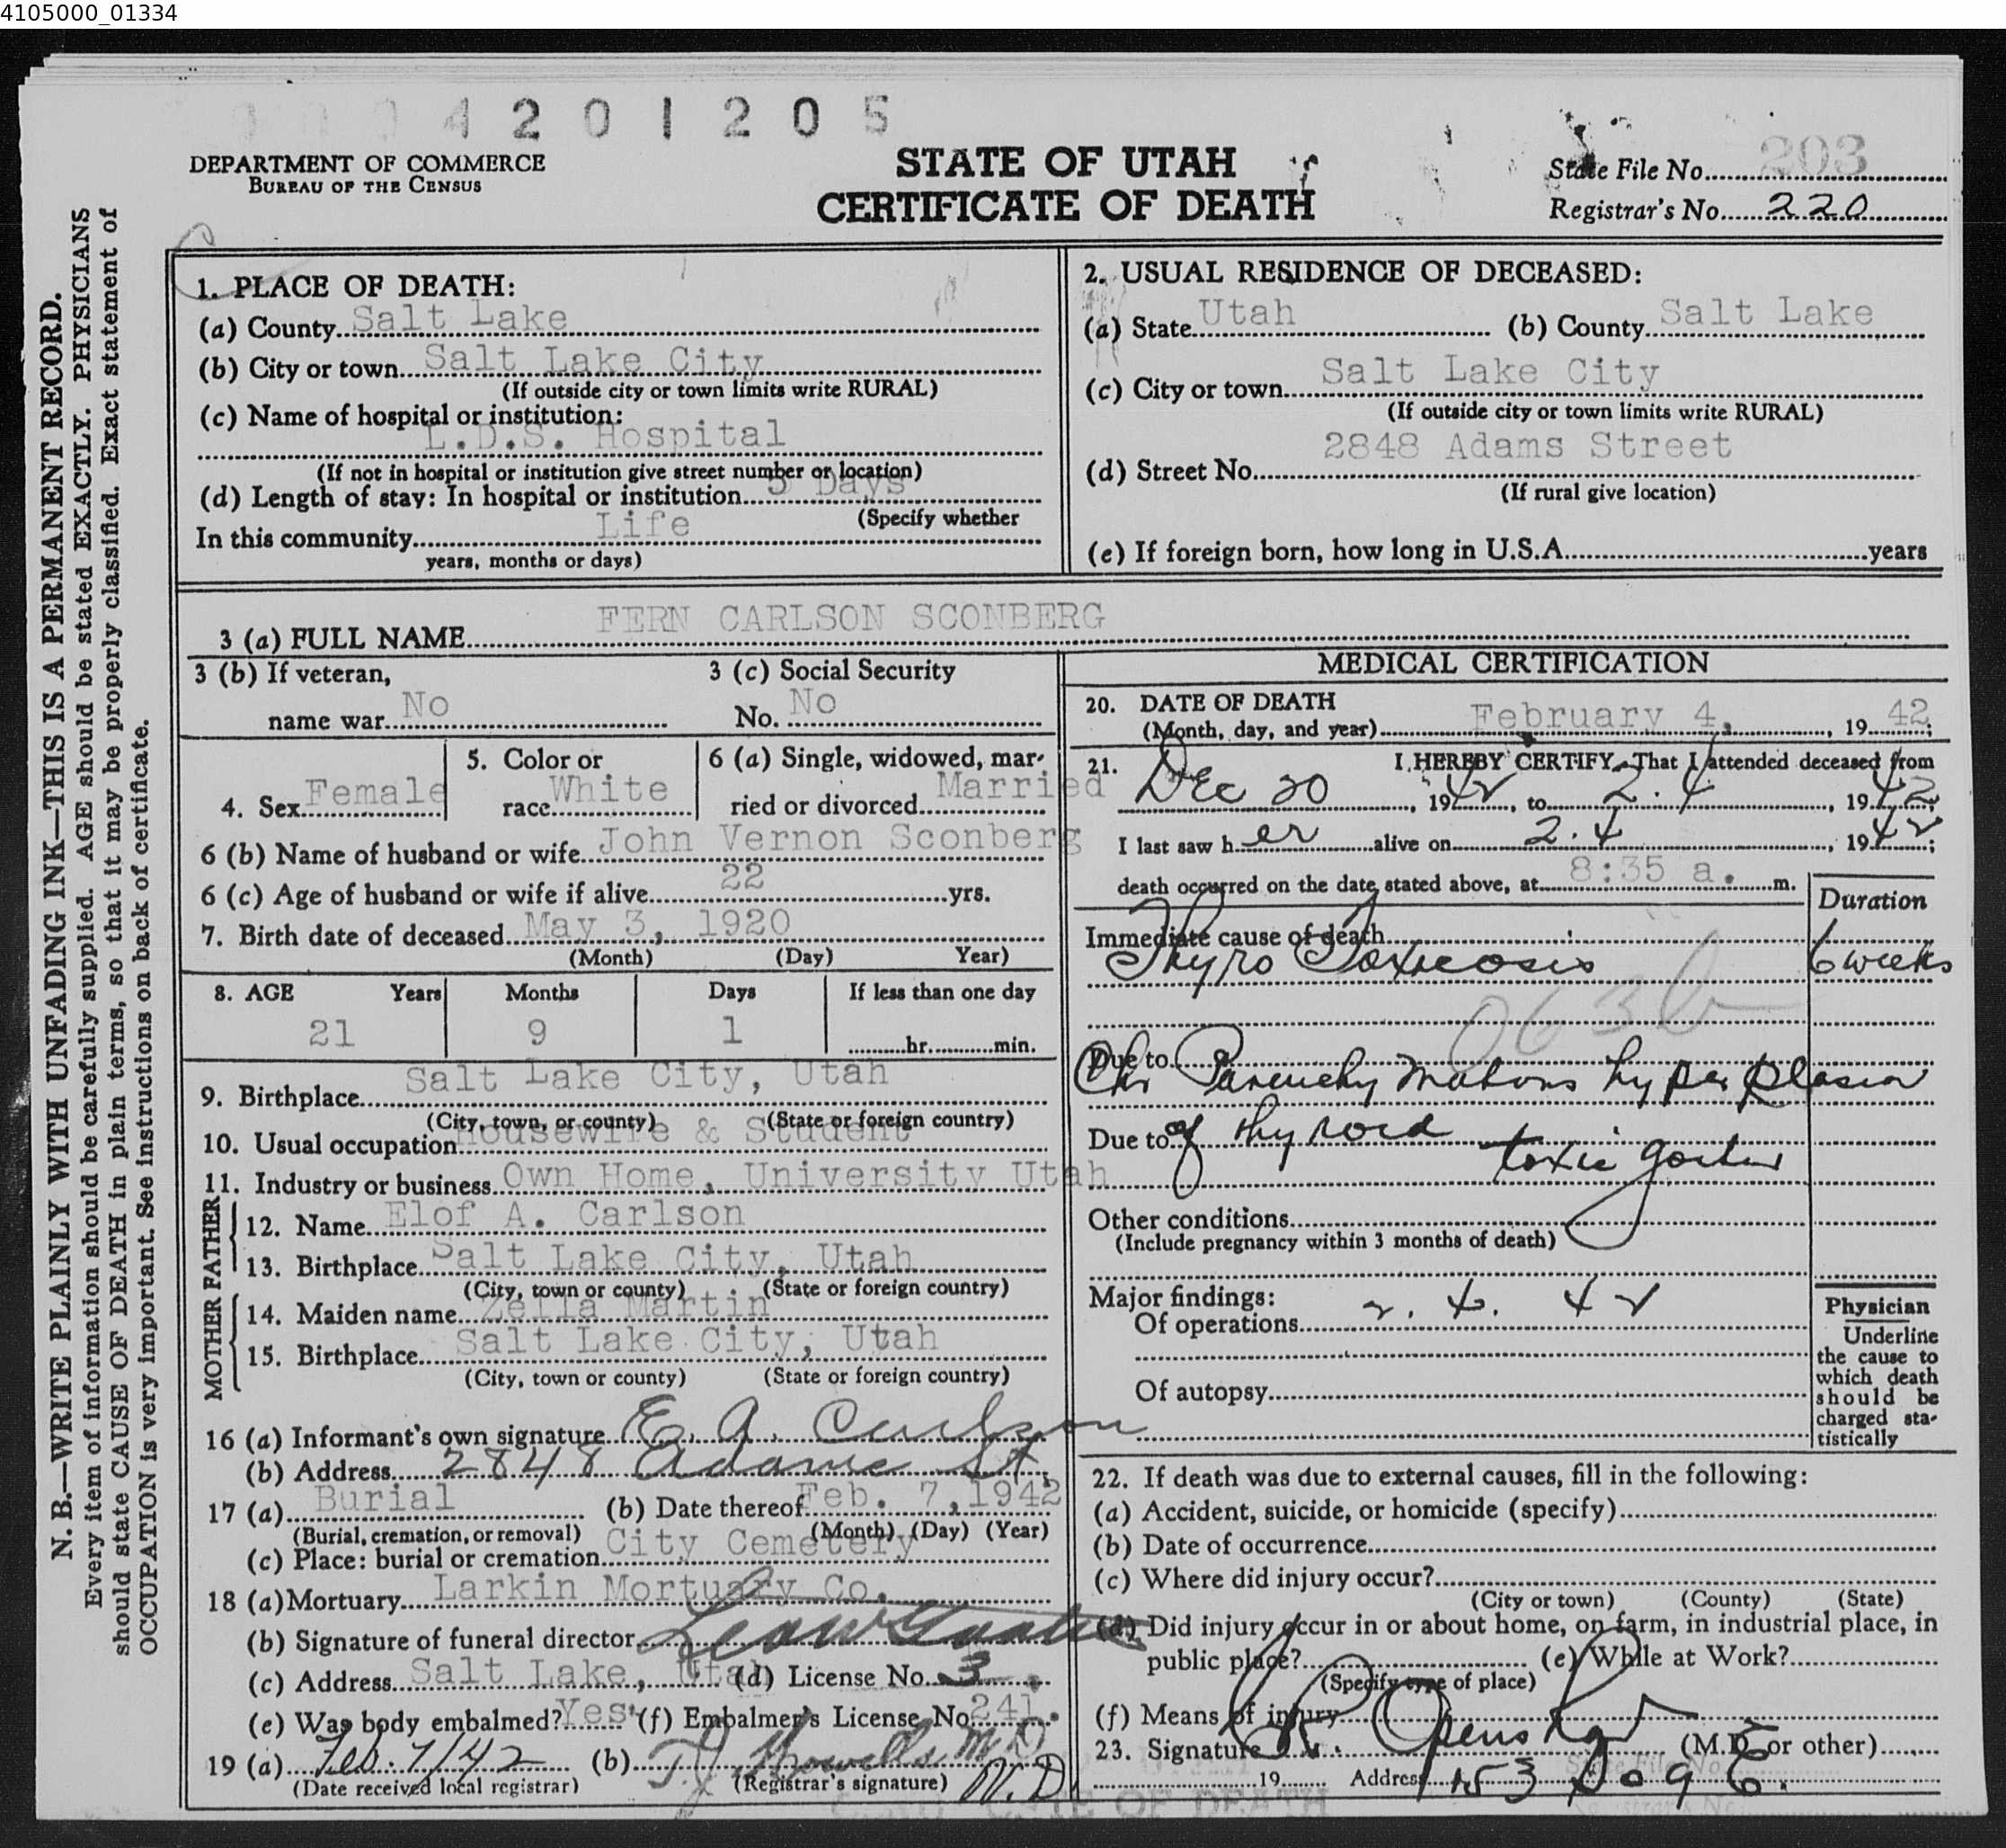 4105000_01334
4201205
DEPARTMENT OF COMMERCE
BUREAU OF THE CENSUS
STATE OF UTAH
CERTIFICATE OF DEATH
State File No. 203
Registrar's No. 220
N. B.—WRITE PLAINLY WITH UNFADING INK—THIS IS A PERMANENT RECORD.
Every item of information should be carefully supplied. AGE should be stated EXACTLY. PHYSICIANS
should state CAUSE OF DEATH in plain terms, so that it may be properly classified. Exact statement of
OCCUPATION is very important. See instructions on back of certificate.
1. PLACE OF DEATH:
(a) County Salt Lake
(b) City or town Salt Lake City
(If outside city or town limits write RURAL)
(c) Name of hospital or institution:
L.D.S. Hospital
(If not in hospital or institution give street number or location)
(d) Length of stay: In hospital or institution Days
(Specify whether
In this community Life
years, months or days)
2. USUAL RESIDENCE OF DECEASED:
(a) State Utah (b) County Salt Lake
(c) City or town Salt Lake City
(If outside city or town limits write RURAL)
(d) Street No. 2848 Adams Street
(If rural give location)
(e) If foreign born, how long in U.S.A. years
3 (a) FULL NAME FERN CARLSON SCONBERG
3 (b) If veteran,
name war No
3 (c) Social Security
No. No
4. Sex Female
5. Color or
race White
6 (a) Single, widowed, mar-
ried or divorced Married
6 (b) Name of husband or wife John Vernon Sconberg
6 (c) Age of husband or wife if alive 22 yrs.
7. Birth date of deceased May 3, 1920
(Month) (Day) Year)
8. AGE Years Months Days If less than one day
21 9 1 hr. min.
9. Birthplace Salt Lake City, Utah
(City, town, or county) (State or foreign country)
10. Usual occupation Housewife & Student
11. Industry or business Own Home, University Utah
FATHER
12. Name Elof A. Carlson
13. Birthplace Salt Lake City, Utah
(City, town or county) (State or foreign country)
MOTHER
14. Maiden name Zella Martin
15. Birthplace Salt Lake City, Utah
(City, town or county) (State or foreign country)
16 (a) Informant's own signature E. A. Carlson
(b) Address 2848 Adams St.
17 (a) Burial (b) Date thereof Feb. 7, 1942
(Burial, cremation, or removal) (Month) (Day) (Year)
(c) Place: burial or cremation City Cemetery
18 (a) Mortuary Larkin Mortuary Co.
(b) Signature of funeral director
(c) Address Salt Lake, Utah (d) License No. 3
(e) Was body embalmed? Yes (f) Embalmer's License No. 241
19 (a) Feb. 7/42 (b) T. J. Howells M D
(Date received local registrar) (Registrar's signature)
MEDICAL CERTIFICATION
20. DATE OF DEATH
(Month, day, and year) February 4, 1942;
21. I HEREBY CERTIFY, That I attended deceased from
Dec 20, 1942, to 2.4, 1942;
I last saw her alive on 2.4, 1942;
death occurred on the date stated above, at 8:35 a. m.
Duration
Immediate cause of death
Thyro Toxicosis 6 weeks
063b
Due to
Chr Parenchymatous hyperplasia
Due to of thyroid toxic goiter
Other conditions
(Include pregnancy within 3 months of death)
Major findings:
Of operations 2. 4. 42
Of autopsy
Physician
Underline
the cause to
which death
should be
charged sta-
tistically
22. If death was due to external causes, fill in the following:
(a) Accident, suicide, or homicide (specify)
(b) Date of occurrence
(c) Where did injury occur?
(City or town) (County) (State)
(d) Did injury occur in or about home, on farm, in industrial place, in
public place? (e) While at Work?
(Specify type of place)
(f) Means of injury
23. Signature (M.D. or other)
19 Address